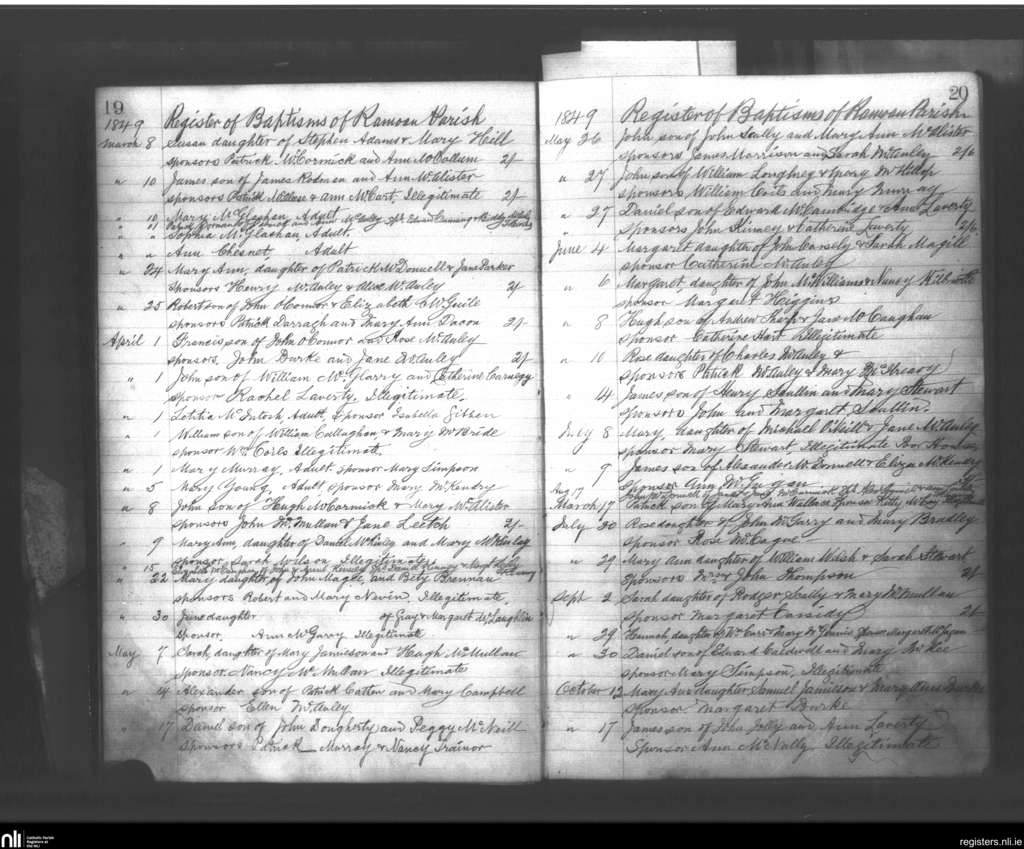 19
1849 Register of Baptisms of Ramoan Parish
March 8 Susan daughter of Stephen Adams & Mary Hill
sponsors Patrick McCormick and Ann McCollum 2/-
" 10 James son of James Rodmen and Ann McAlister
sponsors Patrick McGlose & Ann McCart, Illegitimate 2/-
" 10 Mary McGlashan, Adult
" " Sophia McGlashan, Adult.
" " Ann Chesnet, Adult
" 24 Mary Ann, daughter of Patrick McDonnell & Jane Parker
sponsors Henry McAuley & Alex McAuley 2/-
" 25 Robert son of John O'Connor & Elizabeth McGuile
sponsors Patrick Darragh and Mary Ann Dacon 2/-
April 1 Francis son of John O'Connor and Rose McAuley
sponsors, John Burke and Jane McAuley 2/-
" 1 John son of William McGlarry and Catherine Carnegy
sponsor Rachel Laverty, Illegitimate.
" 1 Letitia McIntosh Adult, Sponsor Isabella Gibben
" 1 William son of William Callaghan & Mary McBride
sponsor Wm Coils Illegitimate.
" 1 Mary Murray, Adult, sponsor Mary Simpson
" 5 Mary Young, Adult sponsor Mary McKendry
" 8 John son of Hugh McCormick & Mary McAlister
sponsors John McMullan & Jane Leetch 2/-
" 9 Mary Ann, daughter of Daniel McKinley and Mary McKinley
sponsor Sarah Wilson Illegitimate
" 15
" 22 Mary daughter of John Magee, and Bety Brennan
sponsors Robert and Mary Nevin, Illegitimate.
" 30 Jane daughter of Gray & Margaret McLaughlin
sponsor, Ann McGarry Illegitimate
May 7 Sarah, daughter of Mary Jamieson and Hugh McMullan
sponsor Nancy McMullan Illegitimate
" 14 Alexander son of Patrick Catten and Mary Campbell
sponsor Ellen McAuley
" 17 Daniel son of John Dougherty and Peggy McNeill
Sponsors Patrick Murray & Nancy Trainor
20
1849 Register of Baptisms of Ramoan Parish
May 26 John son of John Scally and Mary Ann McAlister
sponsors James Morrison and Sarah McAuley 2/6
" 27 John son of William Loughrey & Mary McKillop
sponsors William Coils and Mary Murray
" 27 Daniel son of Edward McCambridge & Ann Laverty
Sponsors John Kinney & Catherine Laverty 2/6
June 4 Margaret daughter of John Carsely & Sarah Magill
sponsor Catherine McAuley
" 6 Margaret daughter of John McWilliams & Nancy
sponsor Margaret Higgins
" 8 Hugh son of Andrew Sharp & Jane McCaughan
sponsor Catherine Hart Illegitimate
" 10 Rose daughter of Charles McAuley &
sponsors Patrick McAuley & Mary McKreavy
" 14 James son of Henry Scullin and Mary Stewart
sponsors John and Margaret Scullin.
July 8 Mary, daughter of Michall O'Neill & Jane McAuley
sponsor Mary Stewart, Illegitimate Poor House
" 9 James son of Alexander McDonnell & Eliza McKeney
sponsor Ann McGugan
Aug 17
March 17 Patrick son of Mary Ann Wallace sponsor Kitty
July 30 Rose daughter of John McGarry and Mary Bradley
sponsor Rose McCague
" 29 Mary Ann daughter of William Welsh & Sarah Stewart
Sponsors Mrs & John Thompson 2/-
Sept 2 Sarah daughter of Rodger Scally & Mary McMullan
sponsor Margaret Cassidy 2/-
" 29 Hannah, daughter of Wm Carr & Mary McGinnis Sponsor Margaret McGugan
" 30 Daniel son of Edward Caldwell and Mary McKee
sponsor Mary Simpson, Illegitimate
October 12 Mary Ann daughter Samuel Jamieson & Mary Ann Burke
Sponsor Margaret Burke
" 17 James son of John Jolly and Ann Laverty
Sponsor Ann McNully Illegitimate
nli
Catholic Parish
Registers at
the NLI
registers.nli.ie